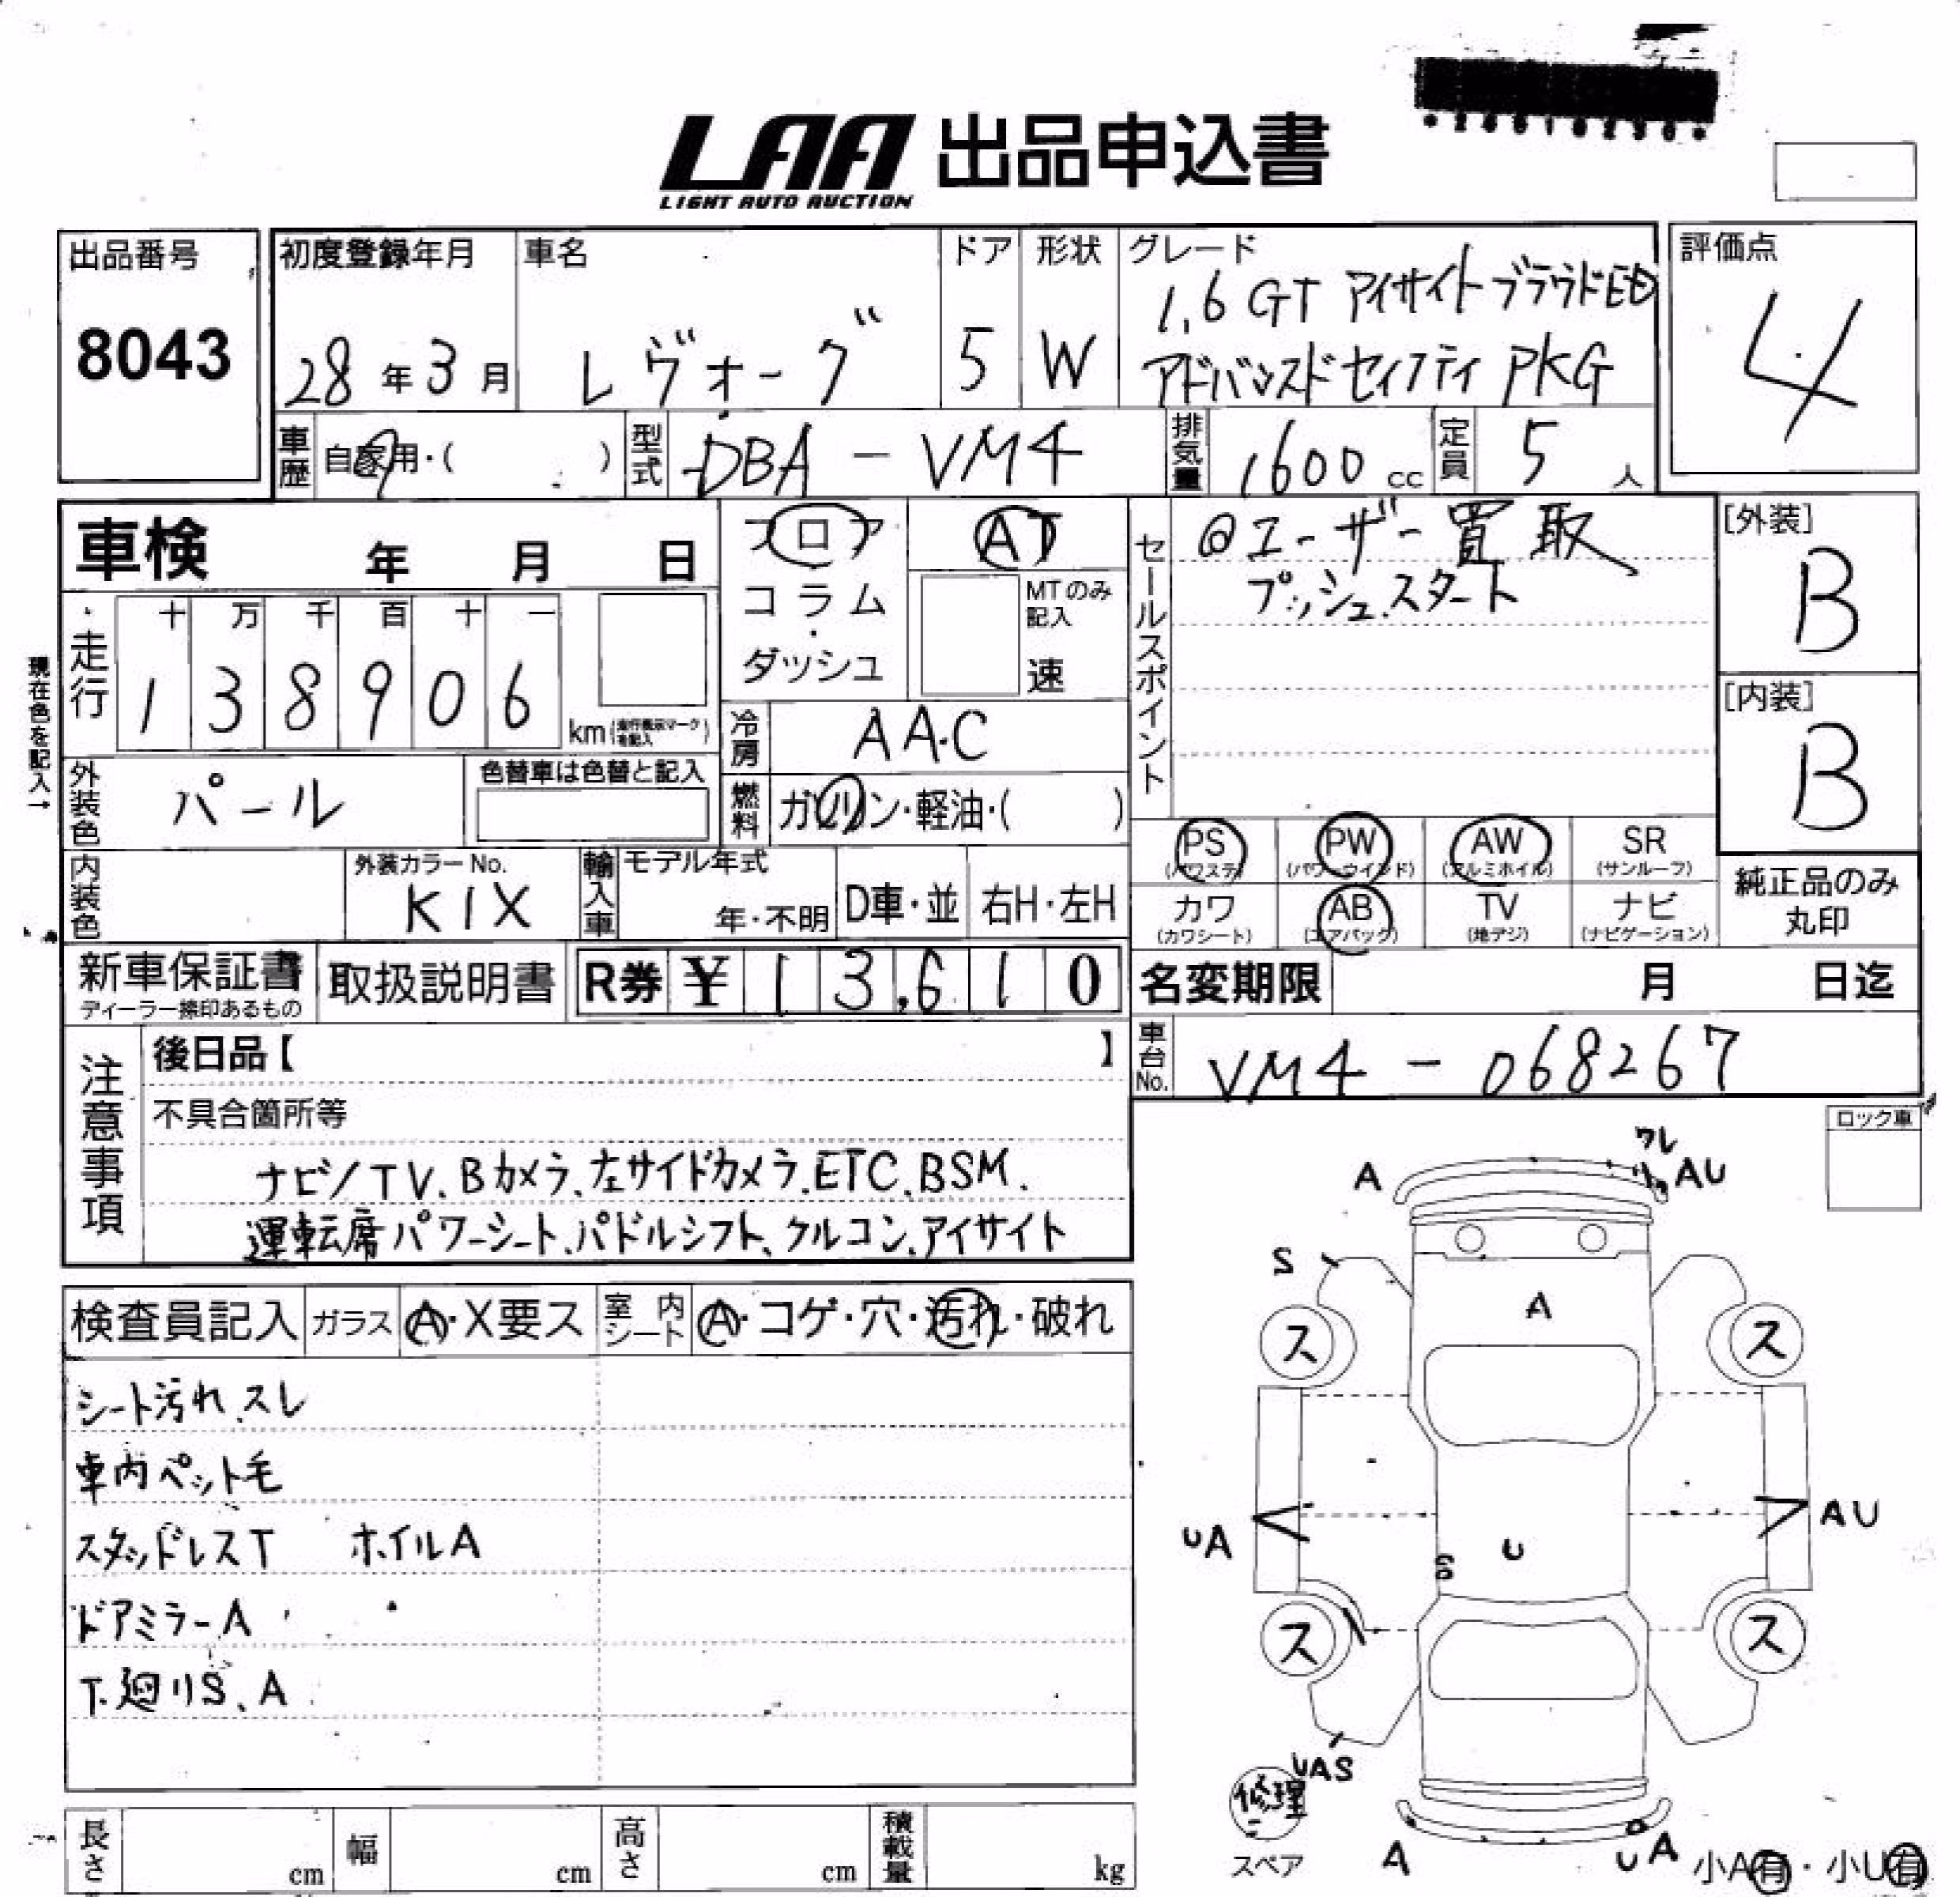 LAA 出品申込書
LIGHT AUTO AUCTION
出品番号
8043
初度登録年月
28年3月
車名
レヴォーグ
ドア
5
形状
W
グレード
1.6 GT アイサイト プラウドED
アドバンスドセイフティ PKG
評価点
4
車歴
自家用・( )
型式
DBA-VM4
排気量
1600cc
定員
5人
車検 年 月 日
フロア
コラム
・
ダッシュ
AT
MTのみ記入
速
セールスポイント
@ユーザー買取
プッシュスタート
[外装]
B
[内装]
B
現在色を記入→
走行
十 万 千 百 十 一
1 3 8 9 0 6
km(走行表示マークを記入)
冷房
AAC
外装色
パール
色替車は色替と記入
燃料
ガソリン・軽油・( )
PS
(パワステ)
PW
(パワーウインド)
AW
(アルミホイル)
SR
(サンルーフ)
カワ
(カワシート)
AB
(エアバック)
TV
(地デジ)
ナビ
(ナビゲーション)
純正品のみ
丸印
内装色
外装カラーNo.
K1X
輸入車
モデル年式
年・不明
D車・並
右H・左H
新車保証書
ディーラー捺印あるもの
取扱説明書
R券 ¥ 13,610
名変期限 月 日迄
車台No.
VM4-068267
注意事項
後日品【 】
不具合箇所等
ナビ/TV、Bカメラ、左サイドカメラ、ETC、BSM、
運転席パワーシート、パドルシフト、クルコン、アイサイト
ロック車
検査員記入
ガラス
A・X要ス
室内シート
A・コゲ・穴・汚れ・破れ
シート汚れ、スレ
車内ペット毛
スタッドレスT ホイルA
ドアミラーA
下廻りS、A
ワレ
A
AU
S
A
ス
ス
UA
AU
U
S
ス
ス
UAS
修理
スペア
A
UA
小A有・小U有
長さ cm
幅 cm
高さ cm
積載量 kg